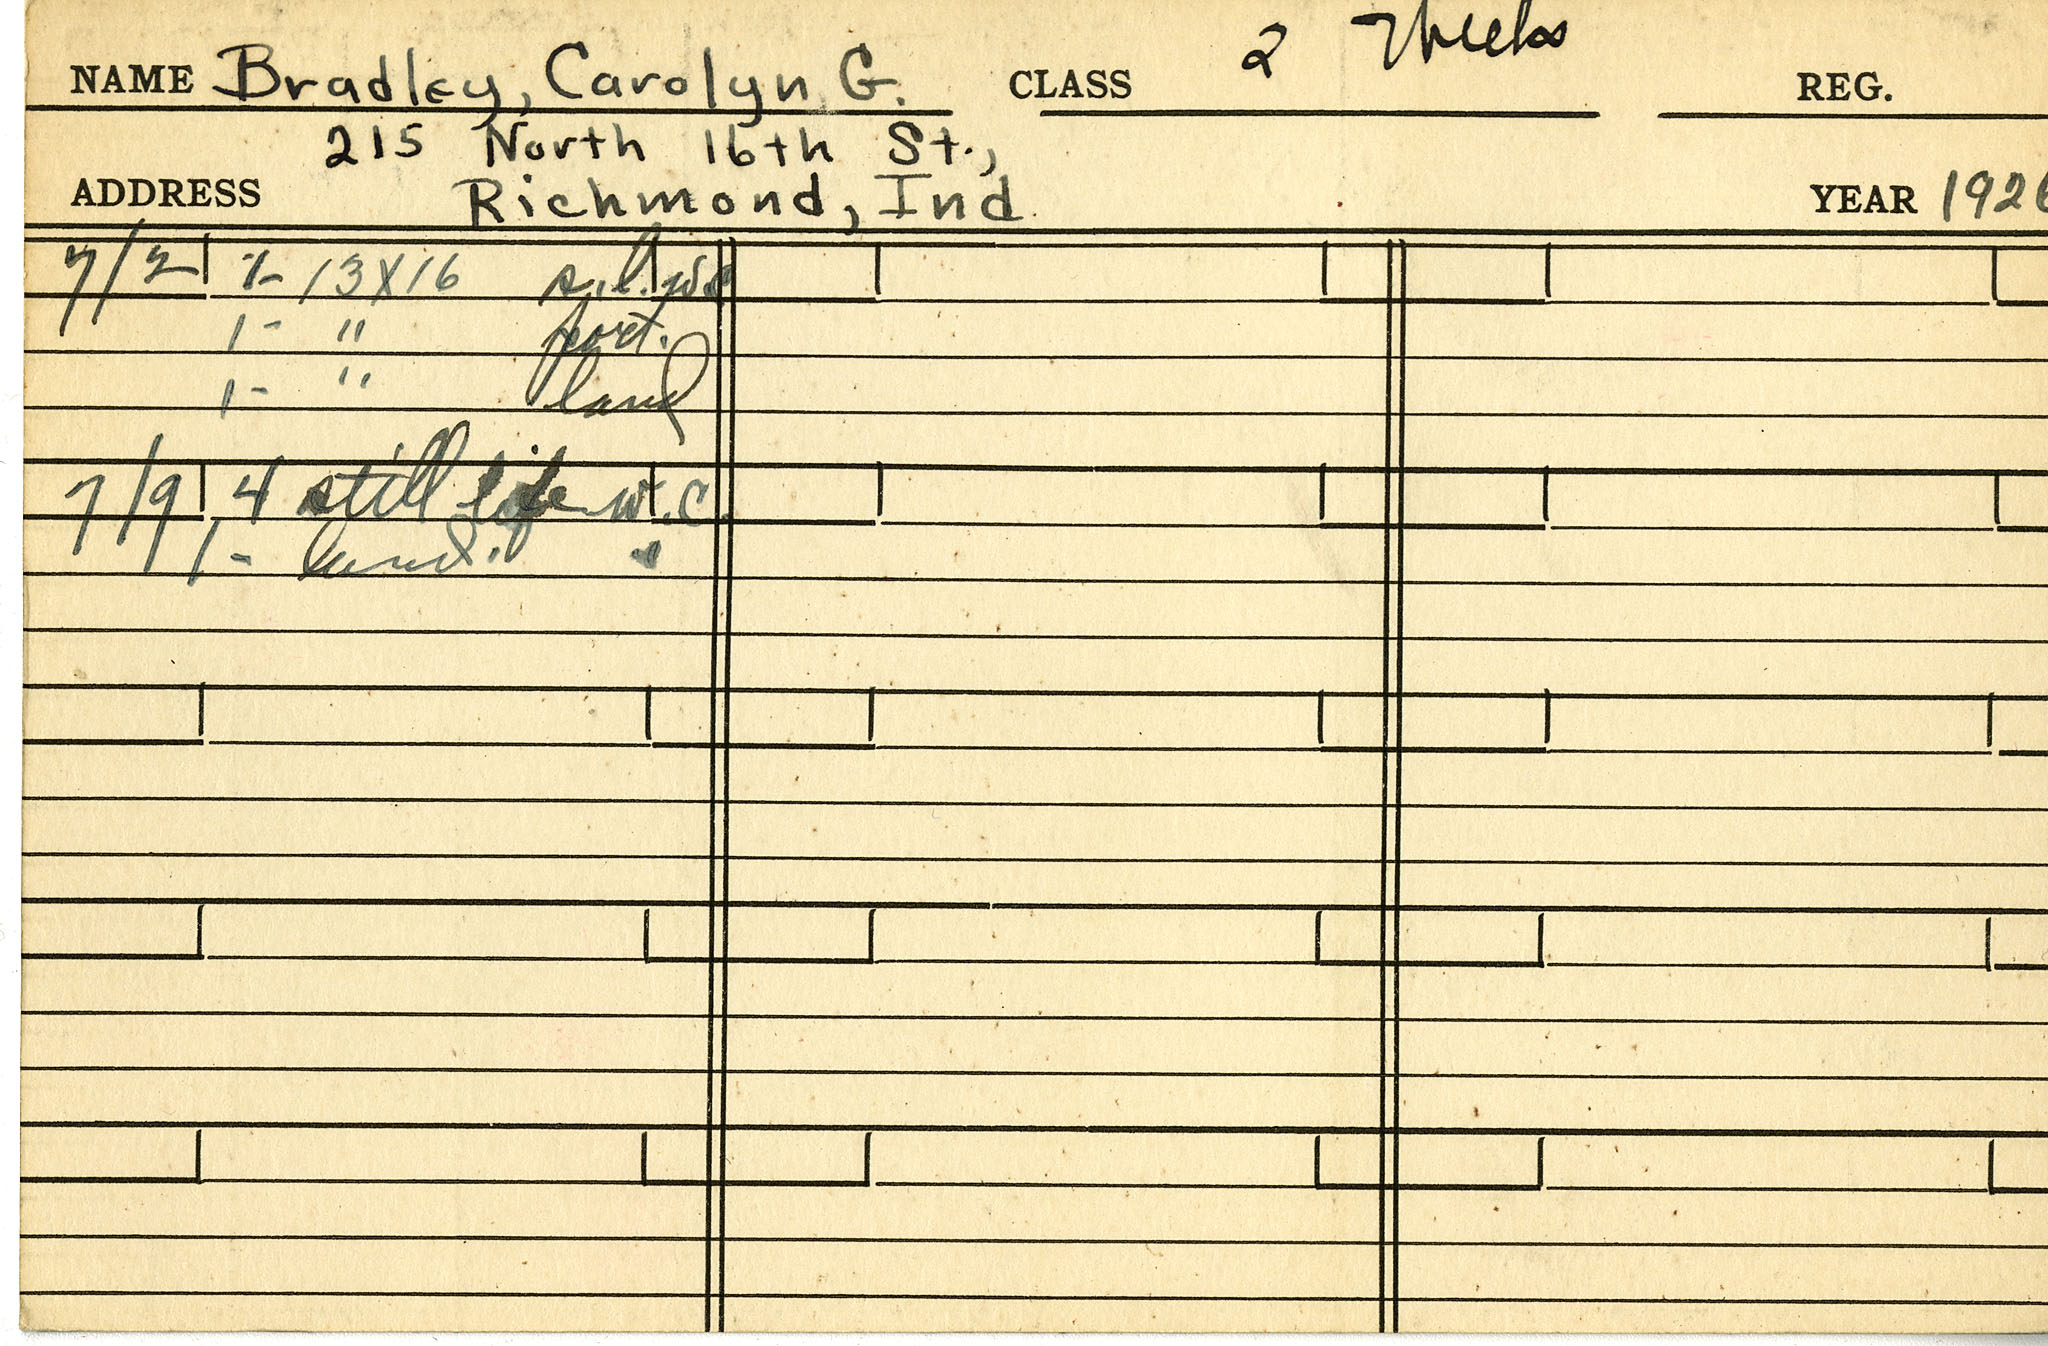 2 Weeks
NAME Bradley, Carolyn G. CLASS REG.
215 North 16th St.,
ADDRESS Richmond, Ind. YEAR 1926
7/2 13X16 s.l. w.c
1- " port.
1- " land
7/9 4 still life w.c.
1- land. "